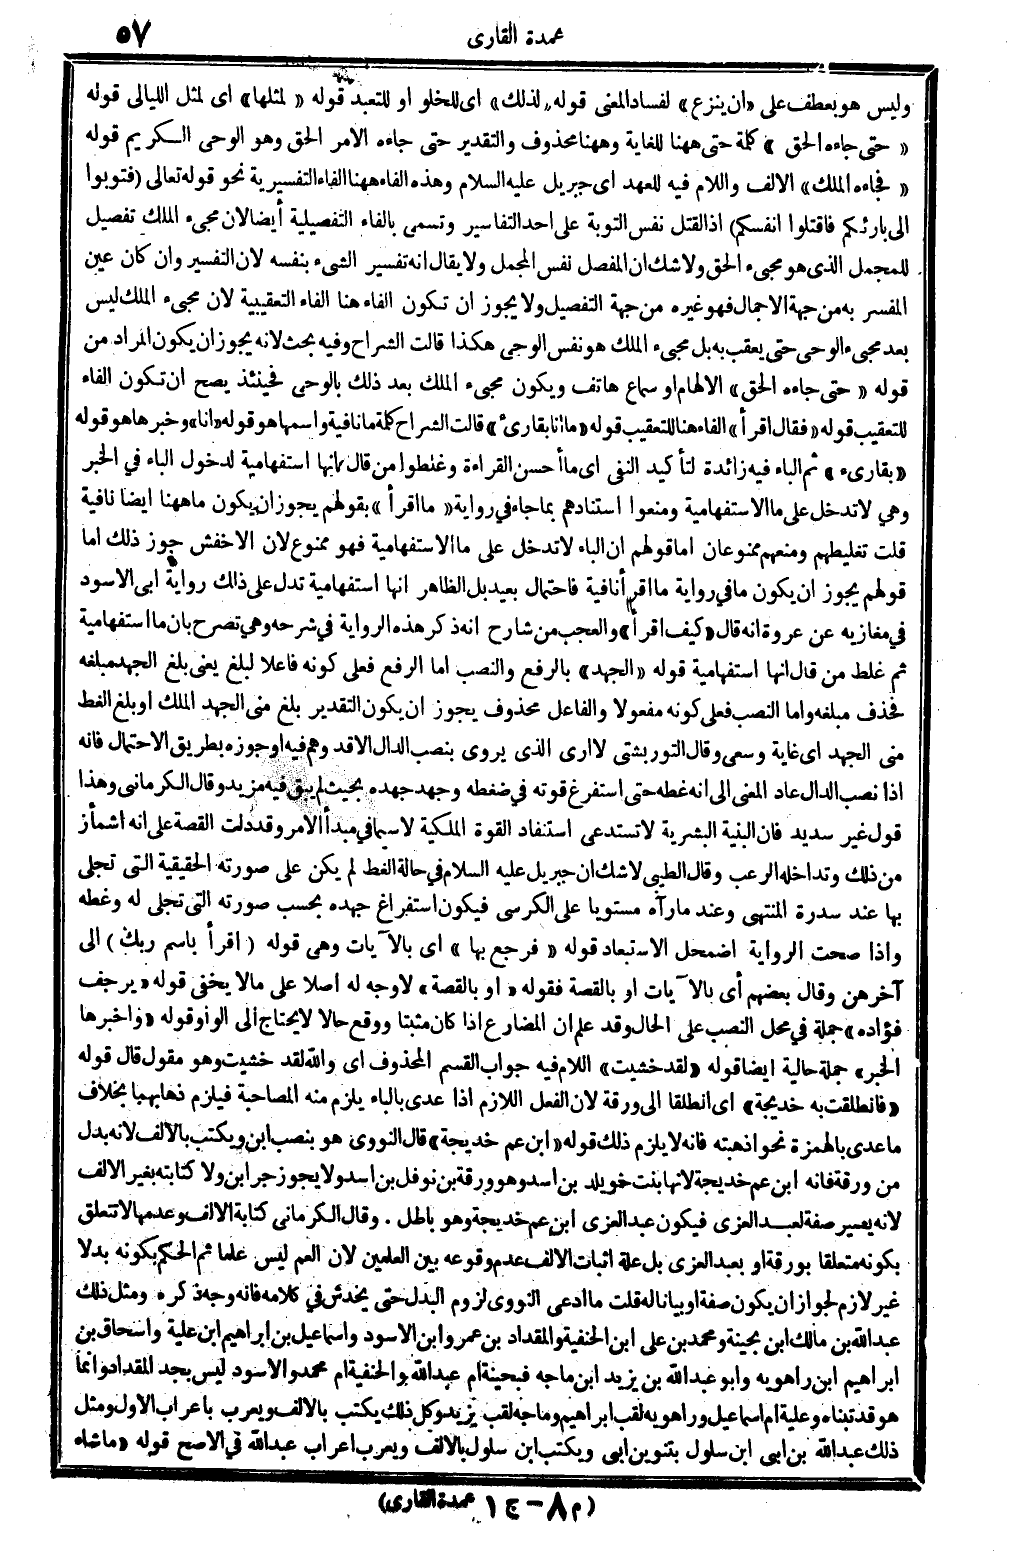 عمدة القارى ٥٧
وليس هو بعطف على «ان ينزع» لفساد المعنى قوله «لذلك» اى للخلو او للتعبد قوله «لمثلها» اى لمثل الليالى قوله
«حتى جاءه الحق» كلمة حتى ههنا للغاية وههنا محذوف والتقدير حتى جاءه الامر الحق وهو الوحى الكريم قوله
«فجاءه الملك» الالف واللام فيه للعهد اى جبريل عليه السلام وهذه الفاء ههنا الفاء التفسيرية نحو قوله تعالى (فتوبوا
الى بارئكم فاقتلوا انفسكم) اذ القتل نفس التوبة على احد التفاسير وتسمى بالفاء التفصيلية أيضا لان مجىء الملك تفصيل
للمجمل الذى هو مجىء الحق ولا شك ان المفصل نفس المجمل ولا يقال انه تفسير الشىء بنفسه لان التفسير وان كان عين
المفسر به من جهة الاجمال فهو غيره من جهة التفصيل ولا يجوز ان تكون الفاء هنا الفاء التعقيبية لان مجىء الملك ليس
بعد مجىء الوحى حتى يعقب به بل مجىء الملك هو نفس الوحى هكذا قالت الشراح وفيه بحث لانه يجوز ان يكون المراد من
قوله «حتى جاءه الحق» الالهام او سماع هاتف ويكون مجىء الملك بعد ذلك بالوحى فحينئذ يصح ان تكون الفاء
للتعقيب قوله «فقال اقرأ» الفاء هنا للتعقيب قوله «ما انا بقارىء» قالت الشراح كلمة ما نافية واسمها هو قوله «انا» وخبرها هو قوله
«بقارىء» ثم الباء فيه زائدة لتأكيد النفى اى ما أحسن القراءة وغلطوا من قال بانها استفهامية لدخول الباء في الخبر
وهي لا تدخل على ما الاستفهامية ومنعوا استنادهم بما جاء في رواية «ما اقرأ» بقولهم يجوز ان يكون ما ههنا ايضا نافية
قلت تغليطهم ومنعهم ممنوعان اما قولهم ان الباء لا تدخل على ما الاستفهامية فهو ممنوع لان الاخفش جوز ذلك اما
قولهم يجوز ان يكون ما في رواية ما اقرأ نافية فاحتمال بعيد بل الظاهر انها استفهامية تدل على ذلك رواية ابى الاسود
في مغازيه عن عروة انه قال «كيف اقرأ» والعجب من شارح انه ذكر هذه الرواية في شرحه وهي تصرح بان ما استفهامية
ثم غلط من قال انها استفهامية قوله «الجهد» بالرفع والنصب اما الرفع فعلى كونه فاعلا لبلغ يعنى بلغ الجهد مبلغه
فحذف مبلغه واما النصب فعلى كونه مفعولا والفاعل محذوف يجوز ان يكون التقدير بلغ منى الجهد الملك او بلغ الغط
منى الجهد اى غاية وسعى وقال التوربشتى لا ارى الذى يروى بنصب الدال الا قد وهم فيه او جوزه بطريق الاحتمال فانه
اذا نصب الدال عاد المعنى الى انه غطه حتى استفرغ قوته في ضغطه وجهد جهده بحيث لم يبق فيه مزيد وقال الكرمانى وهذا
قول غير سديد فان البنية البشرية لا تستدعى استنفاد القوة الملكية لا سيما في مبدأ الامر وقد دلت القصة على انه اشمأز
من ذلك وتداخله الرعب وقال الطيبى لا شك ان جبريل عليه السلام في حالة الغط لم يكن على صورته الحقيقية التى تجلى
بها عند سدرة المنتهى وعند ما رآه مستويا على الكرسى فيكون استفراغ جهده بحسب صورته التى تجلى له وغطه
واذا صحت الرواية اضمحل الاستبعاد قوله «فرجع بها» اى بالآيات وهى قوله (اقرأ باسم ربك) الى
آخرهن وقال بعضهم أى بالآيات او بالقصة فقوله «او بالقصة» لا وجه له أصلا على ما لا يخفى قوله «يرجف
فؤاده» جملة في محل النصب على الحال وقد علم ان المضارع اذا كان مثبتا ووقع حالا لا يحتاج الى الواو قوله «واخبرها
الخبر» جملة حالية ايضا قوله «لقد خشيت» اللام فيه جواب القسم المحذوف اى والله لقد خشيت وهو مقول قال قوله
«فانطلقت به خديجة» اى انطلقا الى ورقة لان الفعل اللازم اذا عدى بالباء يلزم منه المصاحبة فيلزم ذهابهما بخلاف
ما عدى بالهمزة نحو اذهبته فانه لا يلزم ذلك قوله «ابن عم خديجة» قال النووى هو بنصب ابن ويكتب بالالف لانه بدل
من ورقة فانه ابن عم خديجة لانها بنت خويلد بن اسد وهو ورقة بن نوفل بن اسد ولا يجوز جر ابن ولا كتابته بغير الالف
لانه يصير صفة لعبد العزى فيكون عبد العزى ابن عم خديجة وهو باطل . وقال الكرمانى كتابة الالف وعدمها لا تتعلق
بكونه متعلقا بورقة او بعبد العزى بل علة اثبات الالف عدم وقوعه بين العلمين لان العم ليس علما ثم الحكم بكونه بدلا
غير لازم لجواز ان يكون صفة او بيانا له قلت ما ادعى النووى لزوم البدل حتى يخدش في كلامه فانه وجه ذكره ومثل ذلك
عبد الله بن مالك ابن بحينة ومحمد بن على ابن الحنفية والمقداد بن عمرو ابن الاسود واسماعيل بن ابراهيم ابن علية واسحاق بن
ابراهيم ابن راهويه وابو عبد الله بن يزيد ابن ماجه فبحينة ام عبد الله والحنفية ام محمد والاسود ليس بجد المقداد وانما
هو قد تبناه وعلية ام اسماعيل وراهويه لقب ابراهيم وماجه لقب يزيد وكل ذلك يكتب بالالف ويعرب باعراب الاول ومثل
ذلك عبد الله بن ابى ابن سلول بتنوين ابى ويكتب ابن سلول بالالف ويعرب اعراب عبد الله في الاصح قوله «ما شاء
(م ٨ - ج ١ عمدة القارى)